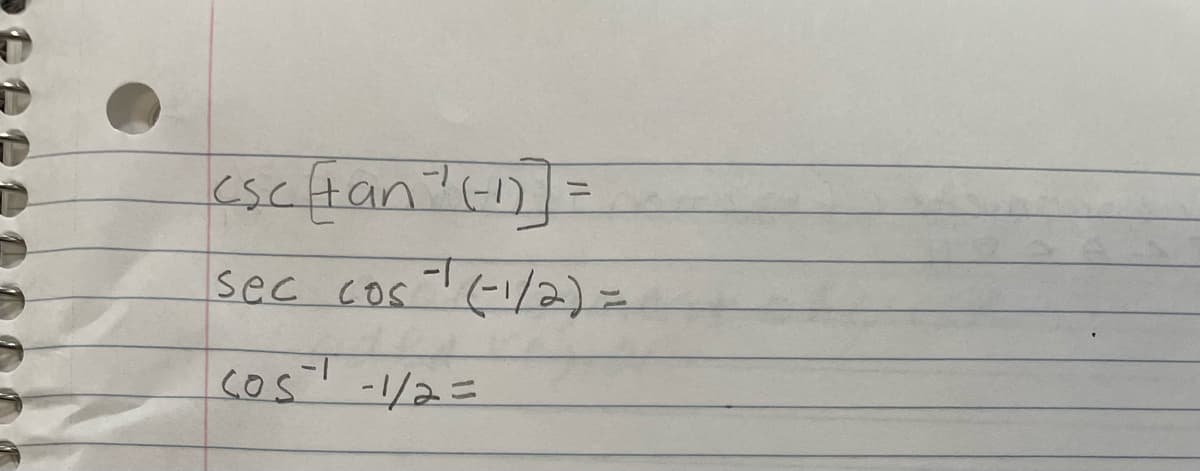 csc [tan⁻¹(-1)] =
sec cos⁻¹(-1/2) =
cos⁻¹ -1/2 =